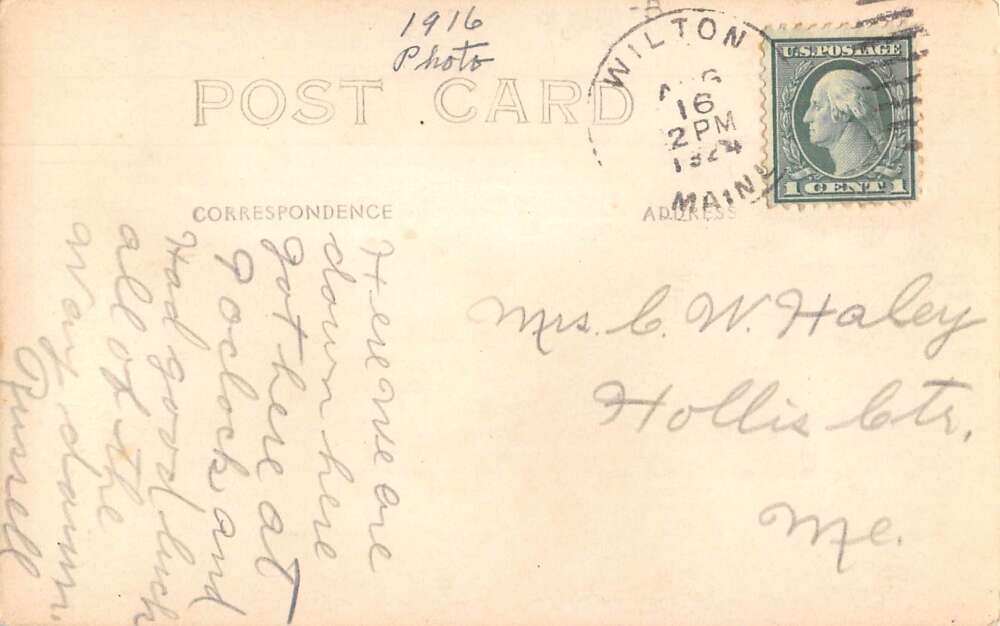 1916
Photo
POST CARD
WILTON
AUG
16
2 PM
1924
MAINE
U.S. POSTAGE
1 CENT 1
CORRESPONDENCE
ADDRESS
Here we are
down here
got here at
9 oclock and
Had good luck
all of the
way down.
Russell
Mrs. C. W. Haley
Hollis Ctr.
Me.